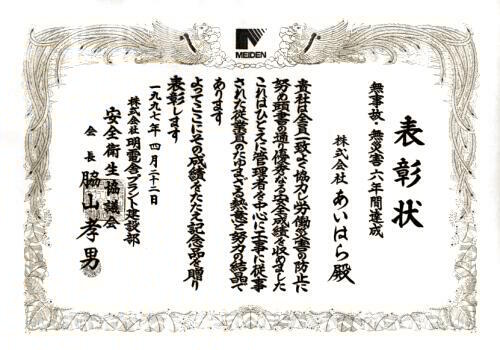 MEIDEN
表彰状
無事故、無災害 六年間達成
株式会社 あいはら 殿
貴社は全員一致よく協力し労働災害の防止に
努め頭書の通り優秀なる安全成績を収めました
これはひとえに管理者を中心に工事に従事
された従業員のたゆまざる熱意と努力の結晶で
あります
よってここにその成績をたたえ記念品を贈り
表彰します
一九九七年 四月二十二日
株式会社 明電舎プラント建設部
安全衛生協議会
会長 脇山孝男